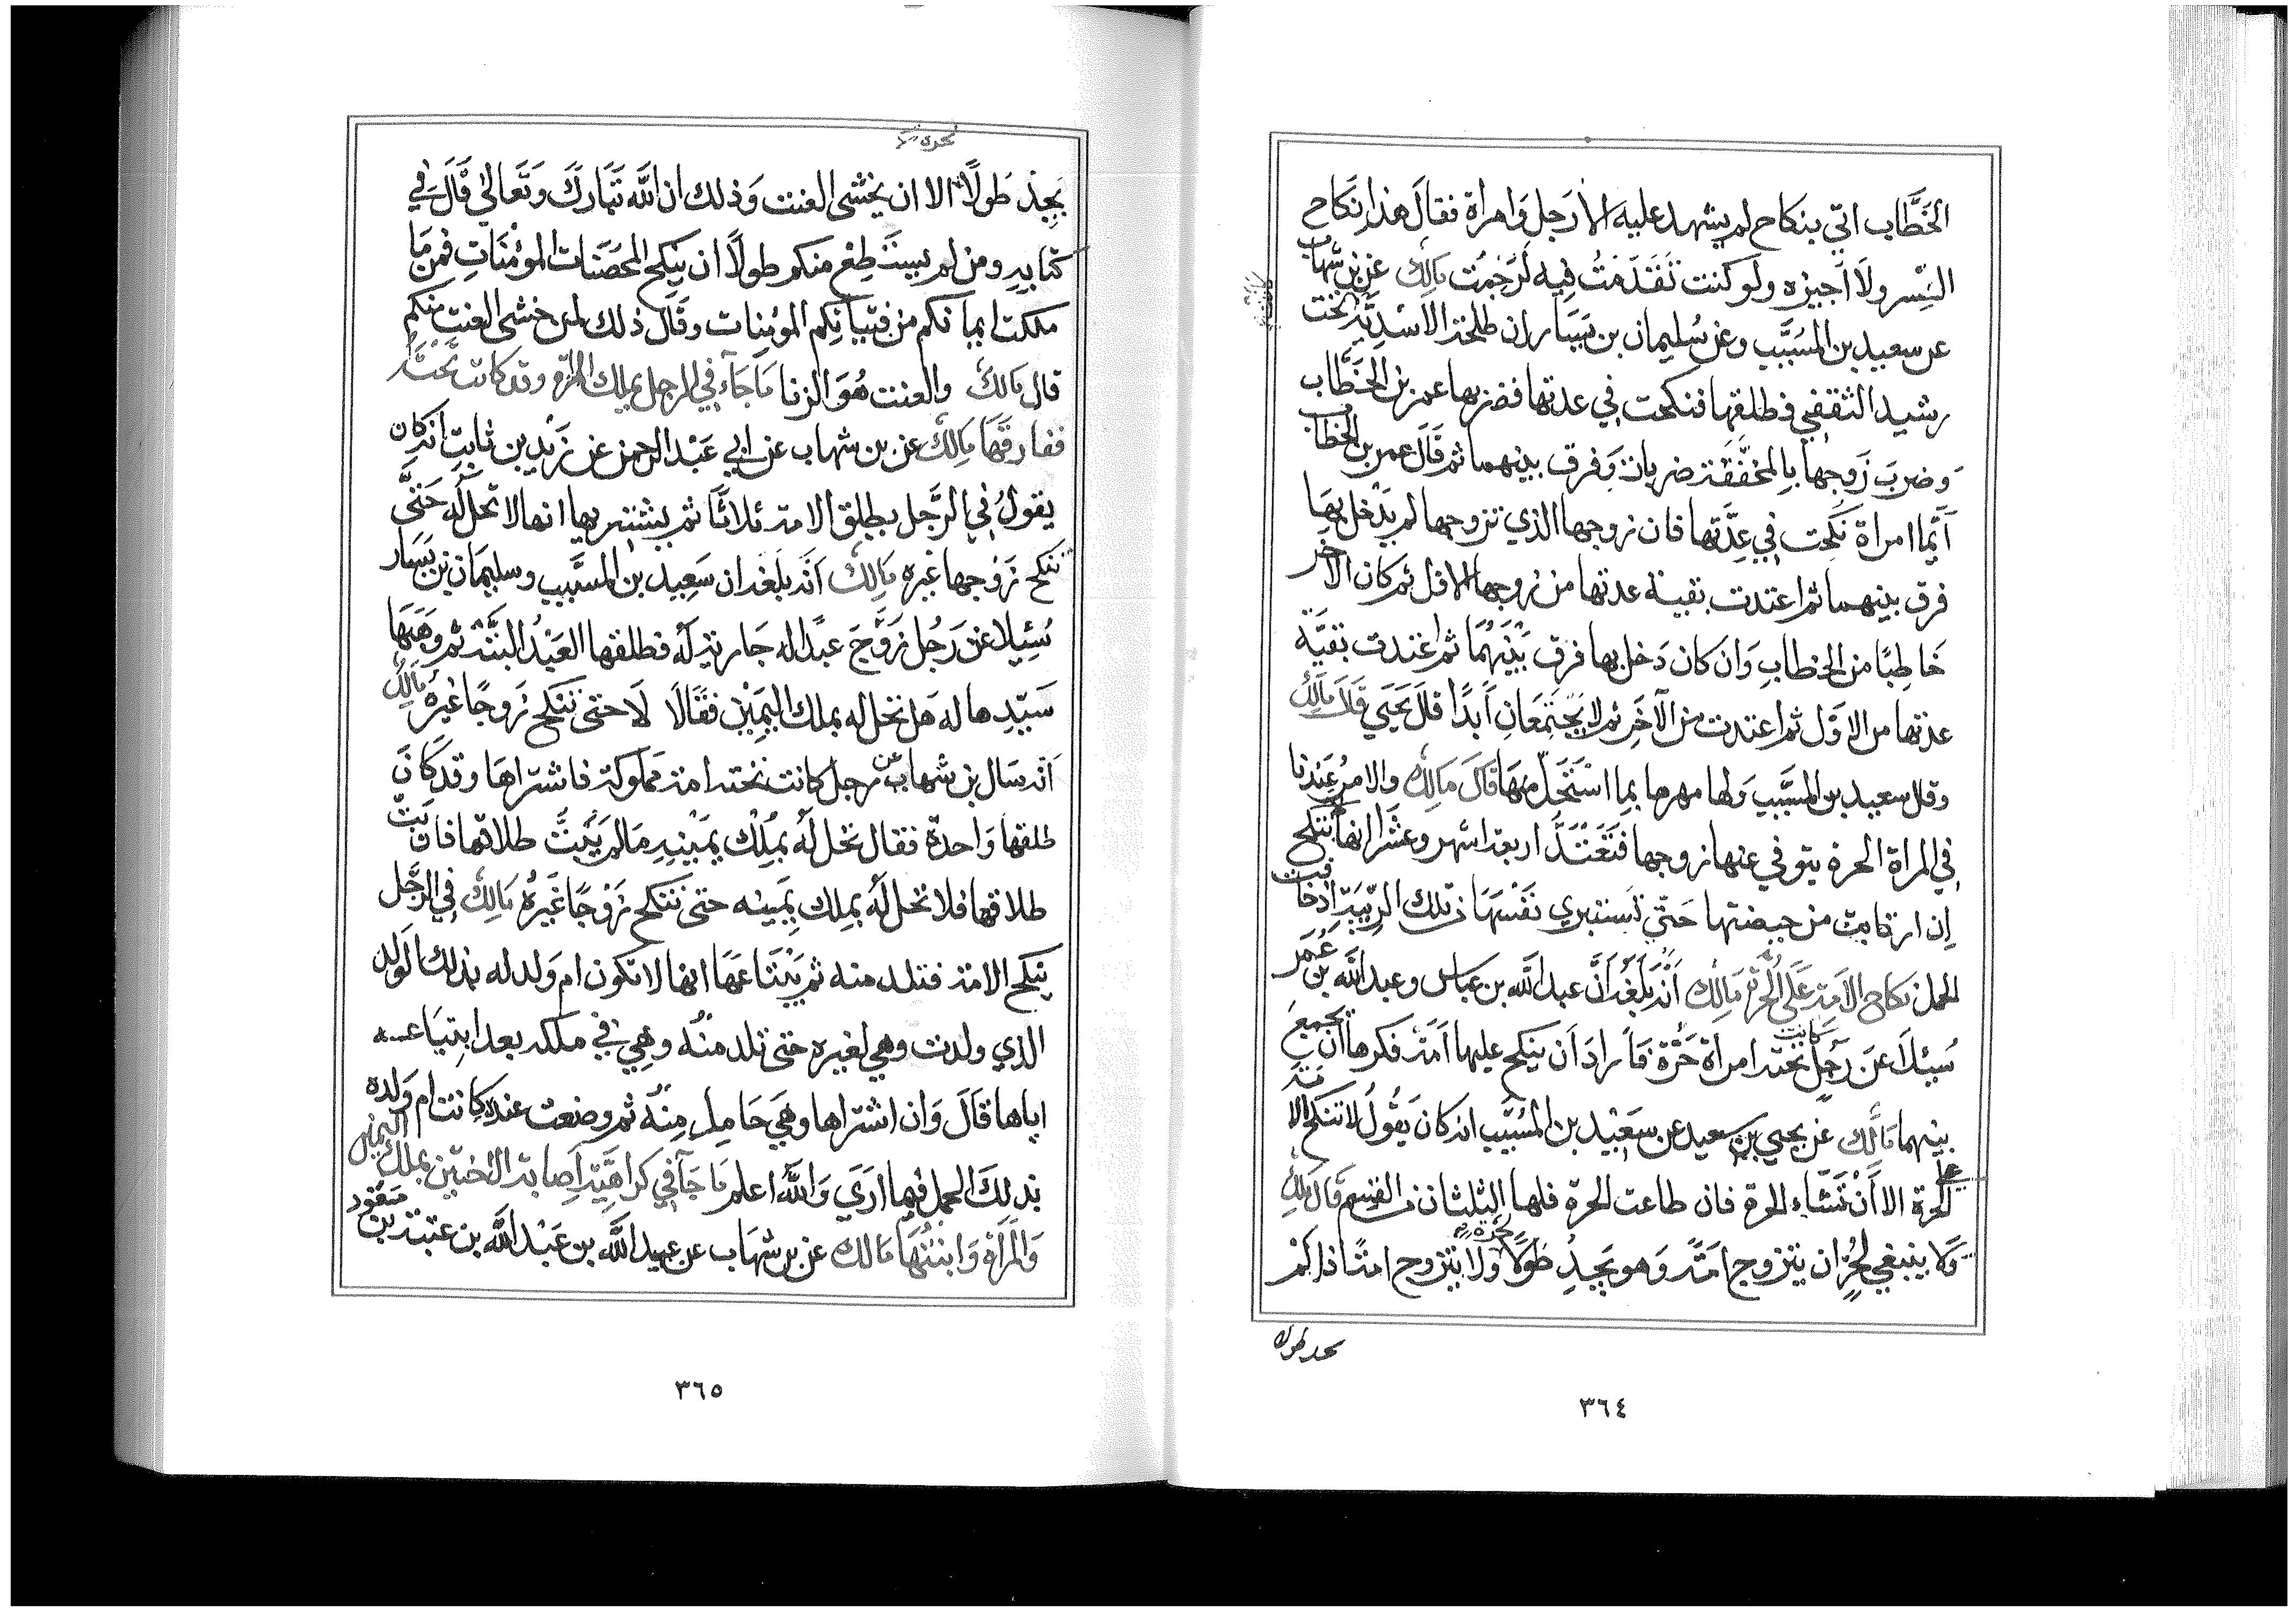 الخَطَّاب اتي بنكاح لم يشهد عليه الا رَجل وَامراة فقالَ هذا نكاح
السِّسر ولَا اجيزه ولو كنت تَقَدَمْتُ فِيه لَرَجمْت مَالِك عَن بن شهاب
عن سعيد بن المسَيَّب وعَن سُليمان بن يَسَار ان طلحة الاسْدِيَّة كانت تحت
رشيد الثقفي فطلقها فنكحت في عدتها فضربها عمر بن الخَطَّاب
وَضربَ زَوجها بِالمخفَقَة ضربات وَفرق بينهما ثم قَالَ عمر بن الخطاب
أيَّما امراة نَكَحت في عِدَّتها فان زوجها الذي تزوجها لم يَدْخل بِهَا
فرق بينهما ثم اعتدت بقية عدتها من زوجها الاول ثم كان الآخر
خَاطِبًا من الخطابِ وَان كان دَخل بها فرق بَيْنَهُمَا ثم اعْتدت بقيَّة
عدتها من الاوَّل ثم اعتدت من الآخَرِ ثم لا يَجْتَمَعَانِ أبَدًا قالَ يَحَيَي قَالَ مَالِك
وقال سعيد بن المسَيَّبِ وَلها مهرها بِما اسْتَحَلّ مِنهَا قَالَ مَالِك والامرُ عَندنا
في المراة الحرة يتوفي عنها زوجها فَتَعْتَدُّ اربعة اشهر وعشْرا انها لا تنكح
إن ارتابت من حيضتها حَتَّي تَستبري نَفْسَهَا من تلك الرِّيبَة اذا خافت
الحمل نكاح الامَة عَلَي الحُرَّة مَالِك أنَّه بَلَغَهُ أنَّ عبد اللَّه بن عباس وعبد اللَّه بن عُمَر
سُئلَا عَن رَجُلٍ كانت تحته امراَة حُرَّة فَأرادَ أن ينكح عليها أمَة فكرها أن يجمع
بينهما مَالِك عَن يحيي بن سعيد عن سَعِيْد بن المُسَيّب انه كان يَقُولُ لا تنكح الامة
على الحرة الا أنْ تَشَاء الحرة فان طاعت الحرة فلها الثلثان من القسم قَال مَالِك
وَلا ينبغي لِحُرٍّ ان يتزوج امَة وَهو يَجِدُ طَولًا لحرة ولا يتزوج امة اذا لم
يجد طولا
٣٦٤
لحرة
يَجِدْ طَولًا الا ان يخشي العنت وَذلك ان اللَّه تَبَارَكَ وَتَعَاليٰ قَالَ في
كتابهِ ومن لم يستَطِعْ منكم طولاً ان يَنكح المحصَنات المؤمْنَاتِ فمن مَا
ملكت ايمانكم من فتياتِكم المؤمِنات وقَالَ ذلك لمن خشي العنت منكم
قال مَالِك والعنت هُوَ الزنا مَا جَاءَ في الرجل يملك المراة وقد كانت تَحْتَهُ
ففارقَهَا مَالِك عَن بن شهاب عَن ابي عَبْد الرحمن عَن زَيْدِ بن ثابتٍ انه كان
يقولُ في الرَّجل يطلق الامة ثلاثًا ثم يشتريها انها لا تحل لَه حَتَّى
تنكح زَوجها غَيره مَالِك أنَّه بلغه ان سَعِيد بن المسَيَّب وسليمَان بن يَسَار
سُئِلا عَن رَجُل زَوَّجَ عبدًا له جَارية لَهُ فطلقها العَبْدُ البَتَّة ثم وَهَبَهَا
سَيّدها له هَل تحل له بملك اليَمِيْن فقَالَا لَا حتى تنكح زَوجًا غَيرَهُ مَالِك
أنه سَال بن شهاب عن رجل كانت تحته امة مملوكة فاشتراهَا وقد كَانَ
طلقها وَاحدة فقال تحل لَهُ بمُلْك يمينهِ مَا لم يَبُتَّ طلاقها فان بَتَّ
طلاقها فلا تحل لَهُ بملك يَمينه حتى تنكح زَوجًا غَيْرُهُ مَالِك في الرَّجل
يَنكح الامة فتلد منه ثم يَبْتَاعَهَا انها لا تكون ام وَلد له بذلك الوَلد
الذي ولدت وهي لغيره حتى تلد منْه وهِي في ملكه بعد ابتِيَاعه
اياها قَالَ وَان اشتراها وهَي حَامِل مِنْهُ ثم وضعت عنده كانت ام وَلده
بذلكَ الحمل فيما ارَي وَاللَّهُ اعلم مَا جَآ في كراهَيَة اصابة الاختين بملك اليَمين
وَالمَرَأة وَابنتهَا مَالك عَن بن شهَاب عن عبيد اللَّه بن عَبْد اللَّه بن عتبة بن مَسْعُود
٣٦٥